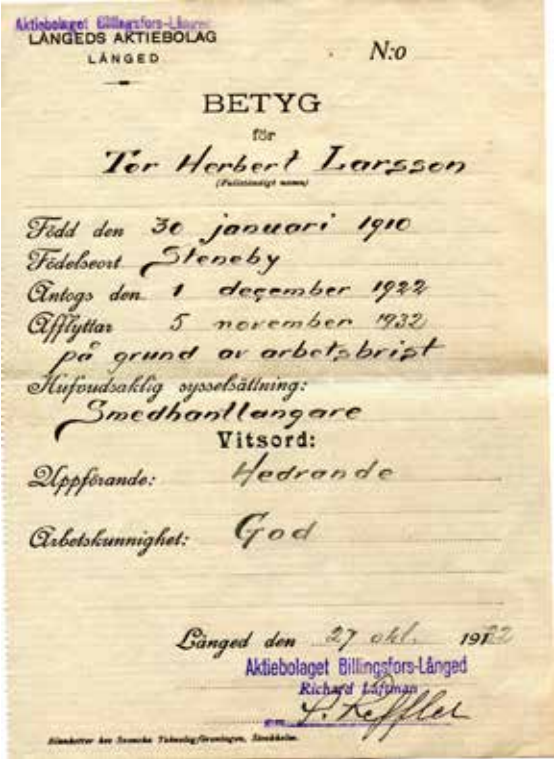 Aktiebolaget Billingsfors-Långed
LÅNGEDS AKTIEBOLAG
LÅNGED
N:o
BETYG
för
Tor Herbert Larsson
(Fullständigt namn)
Född den 30 januari 1910
Födelseort Steneby
Antogs den 1 december 1922
Afflyttar 5 november 1932
på grund av arbetsbrist
Hufvudsaklig sysselsättning:
Smedhantlangare
Vitsord:
Uppförande: Hedrande
Arbetskunnighet: God
Långed den 27 okt. 1932
Aktiebolaget Billingsfors-Långed
Richard Laftman
Blanketter hos Svenska Stockholm.